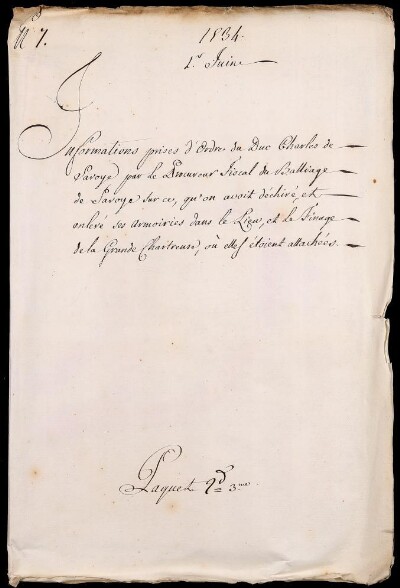 N° 7.
1534.
1.er Juin
Informations prises d'Ordre du Duc Charles de
Savoye par le Procureur Fiscal du Balliage
de Savoye sur ce, qu'on avoit déchiré, et
enlevé ses armoiries dans le Lieu, et le Vinage
de la Grande Chartreuse, où elles étoient attachées.
Paquet 2.d 3.me